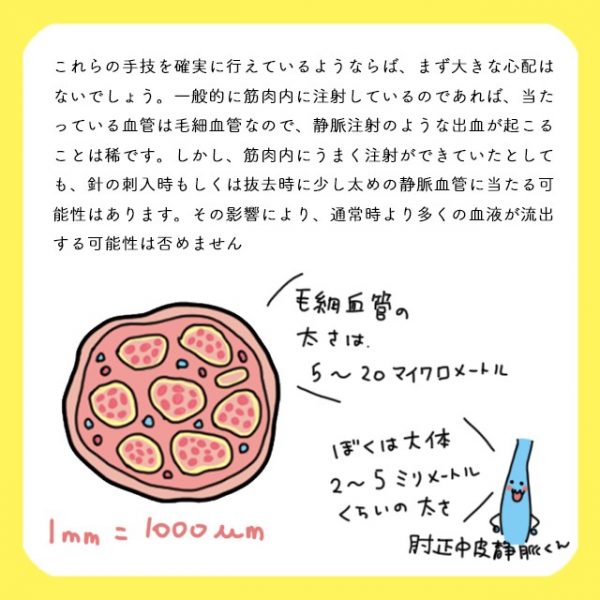 これらの手技を確実に行えているようならば、まず大きな心配は
ないでしょう。一般的に筋肉内に注射しているのであれば、当た
っている血管は毛細血管なので、静脈注射のような出血が起こる
ことは稀です。しかし、筋肉内にうまく注射ができていたとして
も、針の刺入時もしくは抜去時に少し太めの静脈血管に当たる可
能性はあります。その影響により、通常時より多くの血液が流出
する可能性は否めません
毛細血管の
太さは.
5〜20マイクロメートル
ぼくは大体
2〜5ミリメートル
くらいの太さ
肘正中皮静脈くん
1mm = 1000μm